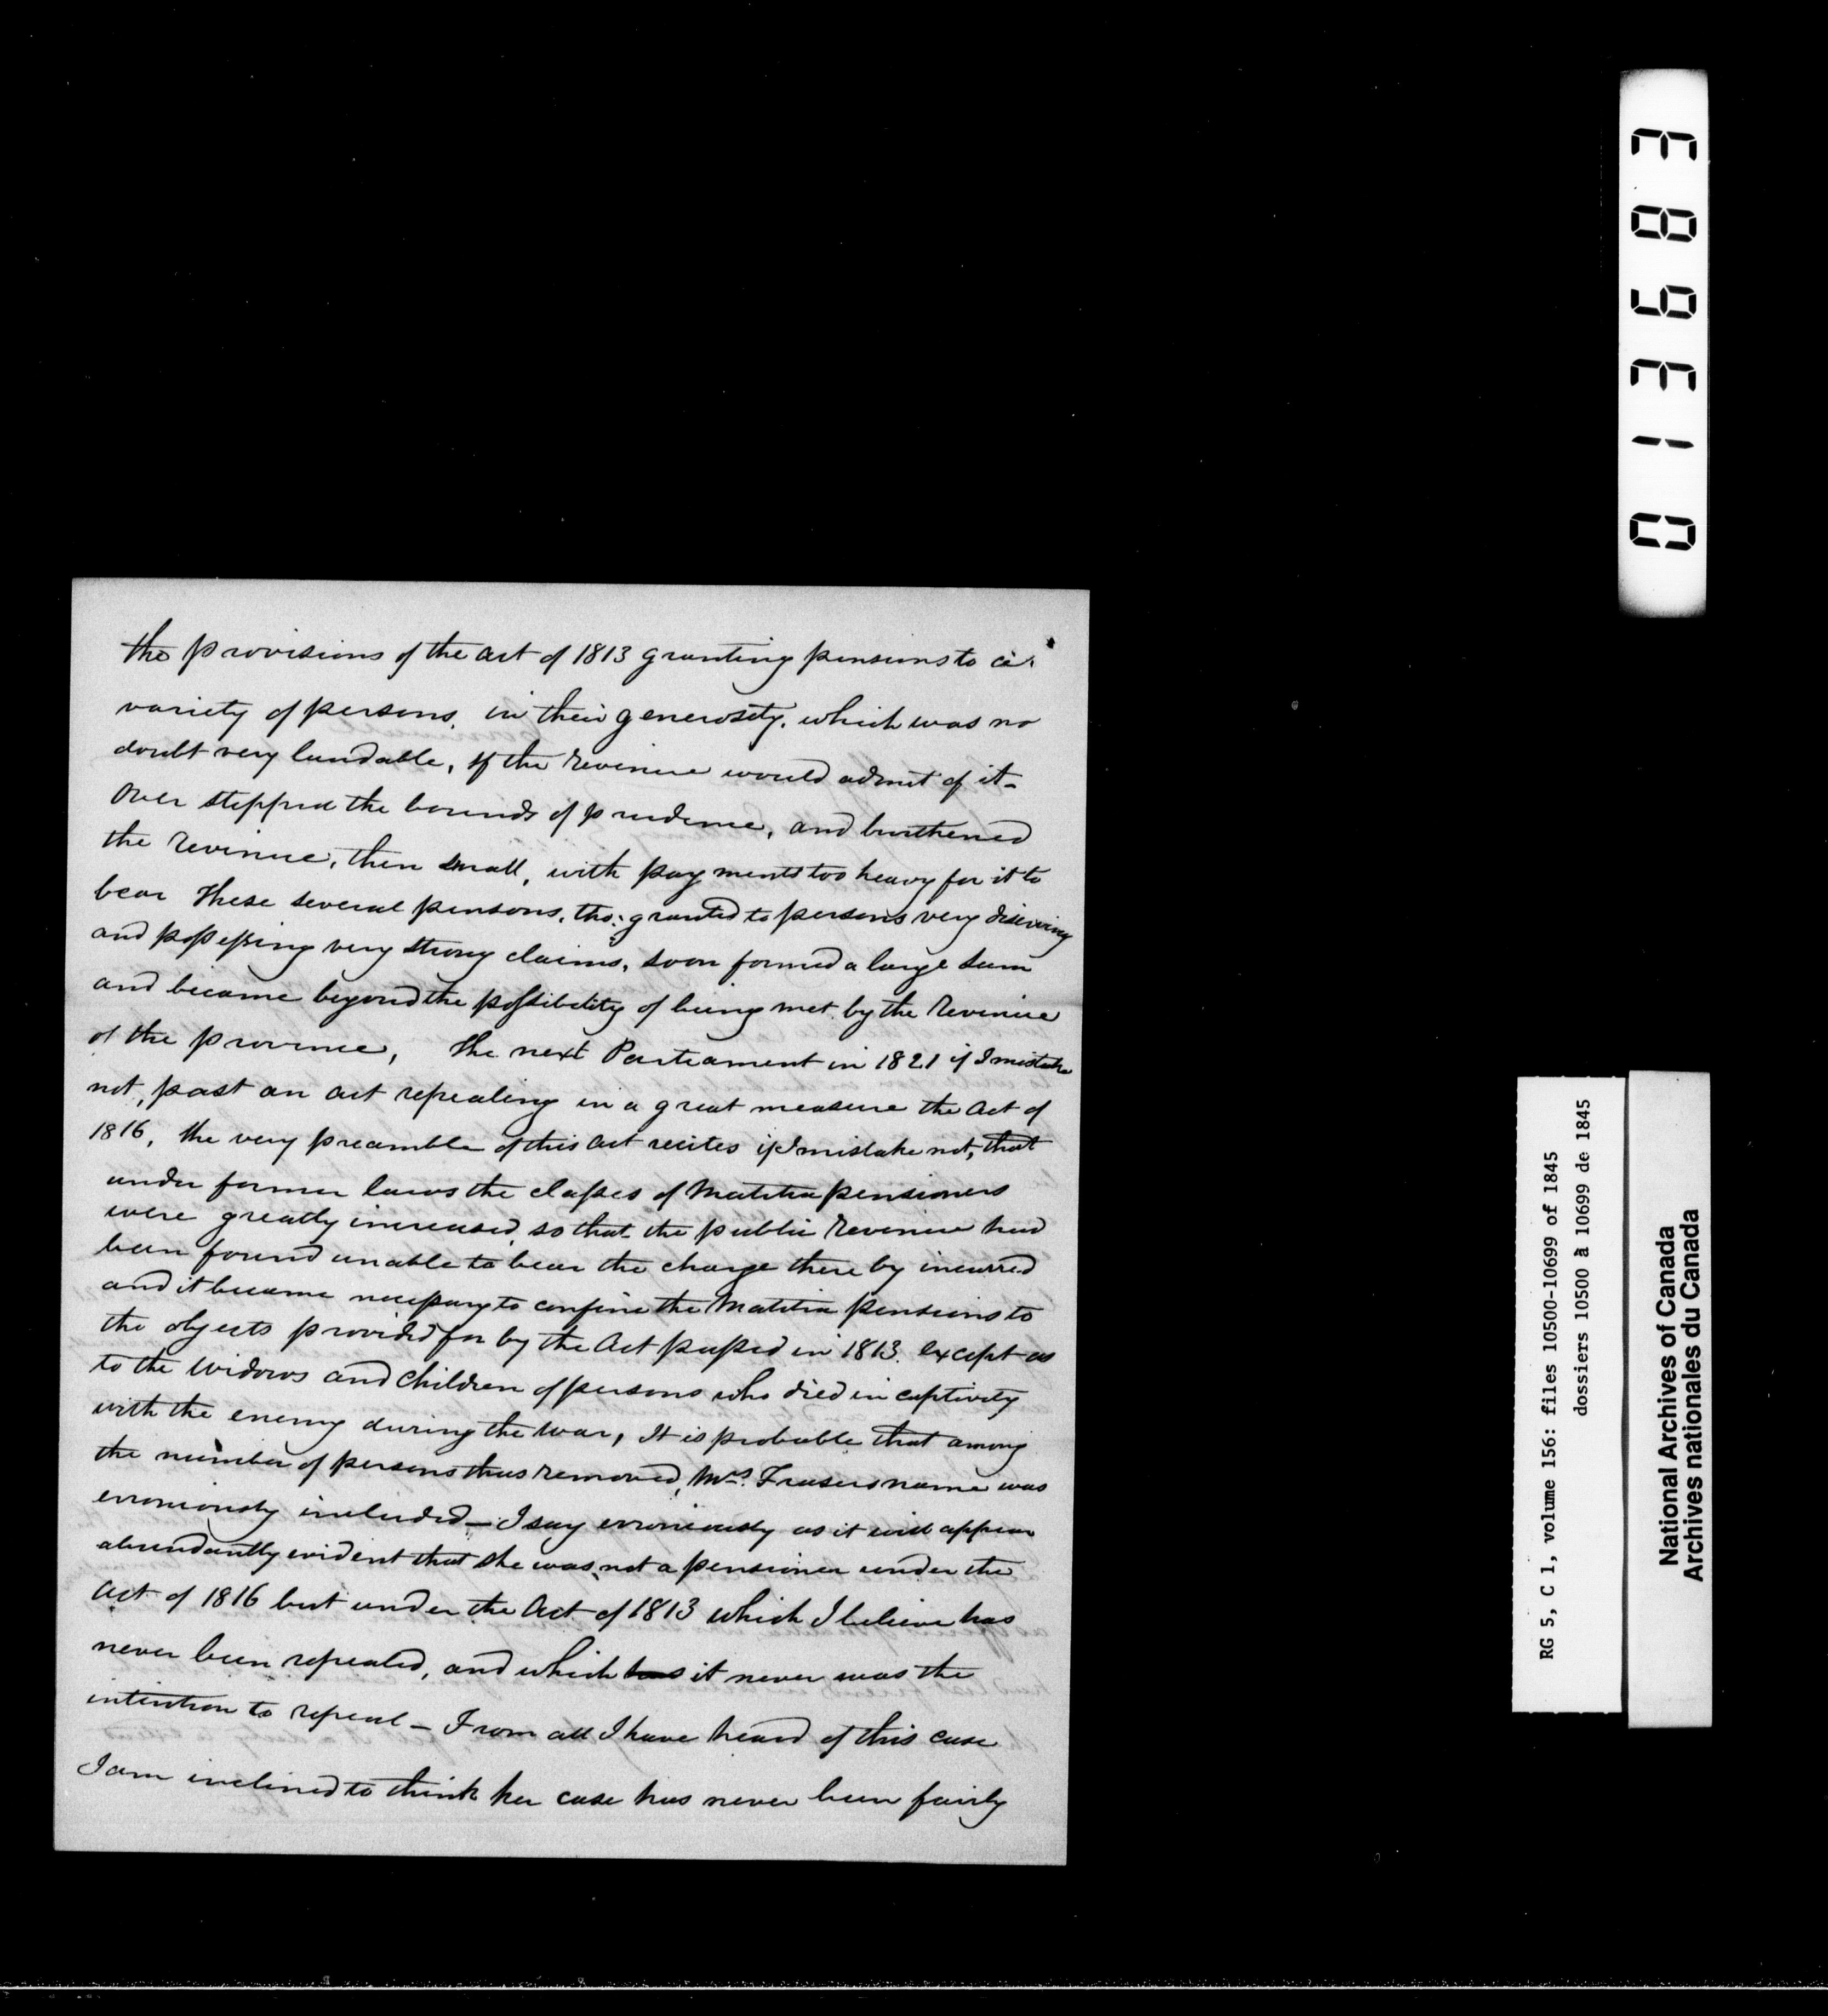 the provisions of the act of 1813 granting pensions to a
variety of persons, in their generosity, which was no
doubt very laudable, if the Revenue would admit of it -
Over stepped the bounds of prudence, and burthened
the Revenue, then small, with payments too heavy for it to
bear These several pensions, tho: granted to persons very deserving
and possessing very strong claims, soon formed a large sum
and became beyond the possibility of being met by the Revenue
of the province, The next Parliament in 1821 if I mistake
not, past an act repealing in a great measure the Act of
1816, the very preamble of this Act recites if I mistake not, that
under former laws the classes of Militia pensioners
were greatly increased, so that the public Revenue had
been found unable to bear the charge there by incurred
and it became necessary to confine the Militia pensions to
the objects provided for by the Act passed in 1813. except as
to the Widows and Children of persons who died in captivity
with the enemy during the War, It is probable that among
the number of persons thus removed, Mrs. Frasers name was
erroniously included - I say erroniously as it will appear
abundantly evident that she was not a pensioner under the
Act of 1816 but under the Act of 1813 which I believe has
never been repealed, and which has it never was the
intention to repeal - From all I have heard of this case
I am inclined to think her case has never been fairly
013683
RG 5, C 1, volume 156: files 10500-10699 of 1845
dossiers 10500 à 10699 de 1845
National Archives of Canada
Archives nationales du Canada